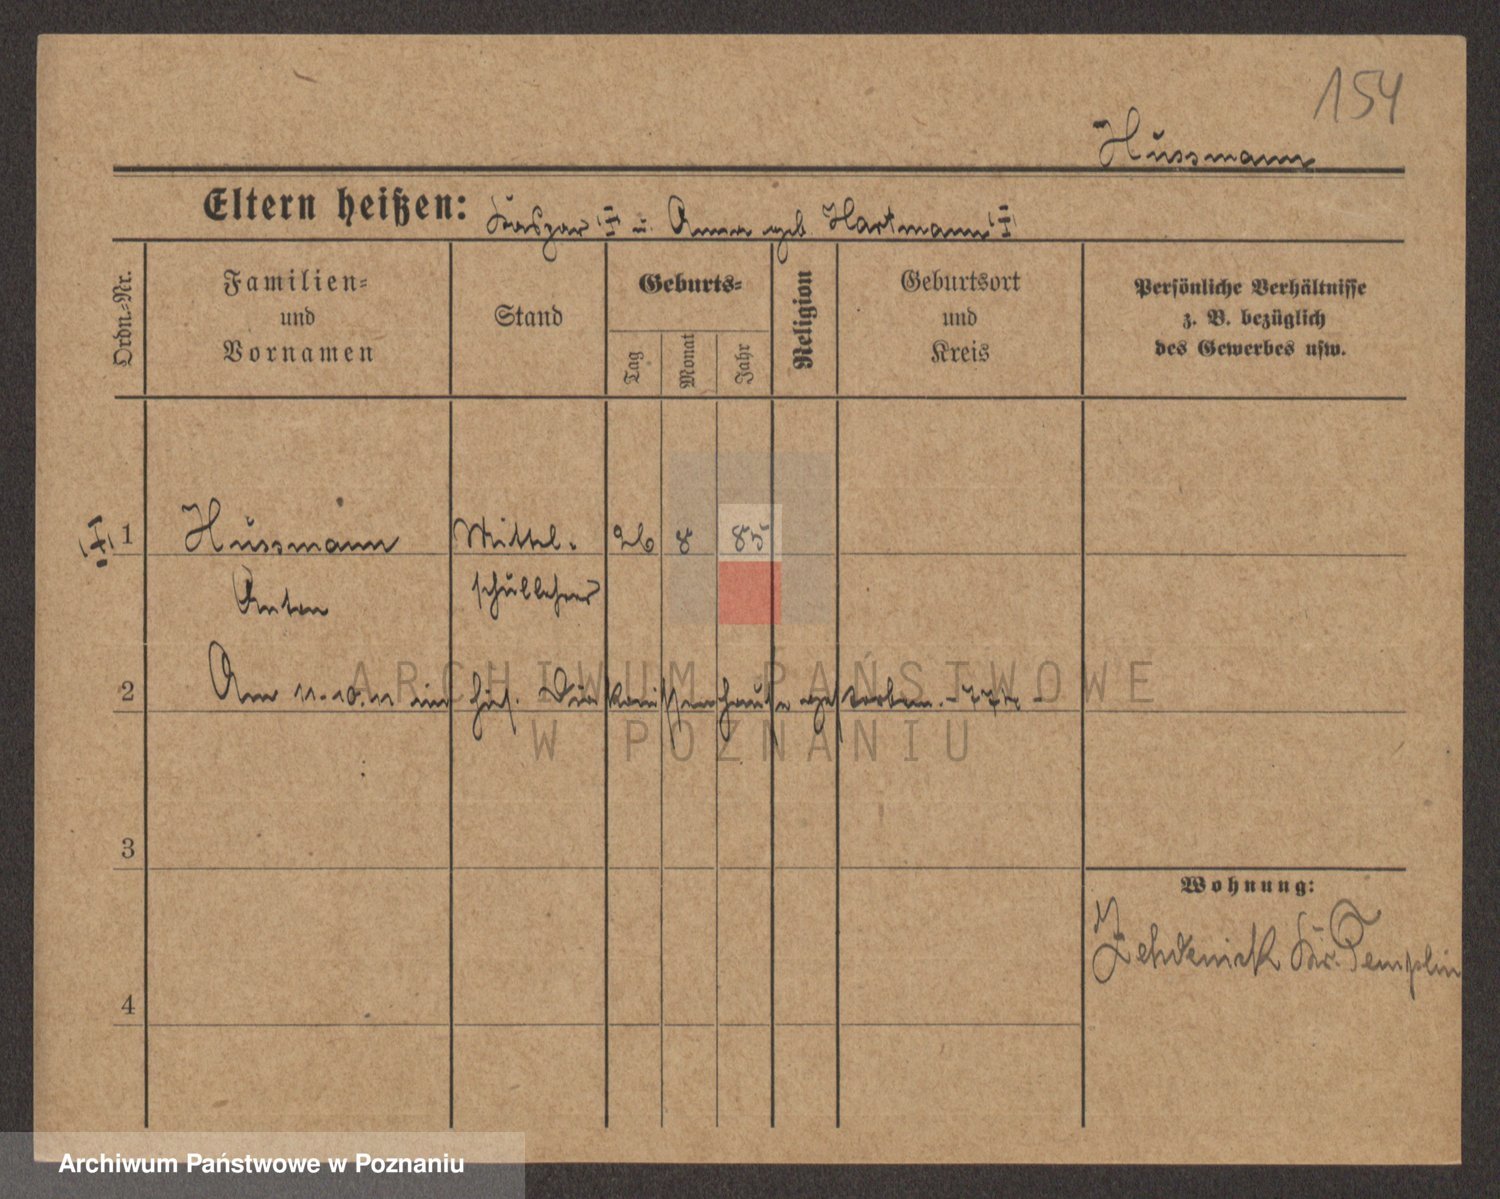 154
Hussmann
Eltern heißen: Kaspar u. Anna geb. Hartmann
Ordn.-Nr.
Familien- und Vornamen
Stand
Geburts-
Tag
Monat
Jahr
Religion
Geburtsort und Kreis
Persönliche Verhältnisse z. B. bezüglich des Gewerbes usw.
1 Hussmann Mittel- 26 8 85
Anton schullehrer
2 Am 11.10.11 im hies. Diakonissenhause gestorben.
3
4
Wohnung:
Zehdenick Kr. Templin
ARCHIWUM PAŃSTWOWE
W POZNANIU
Archiwum Państwowe w Poznaniu